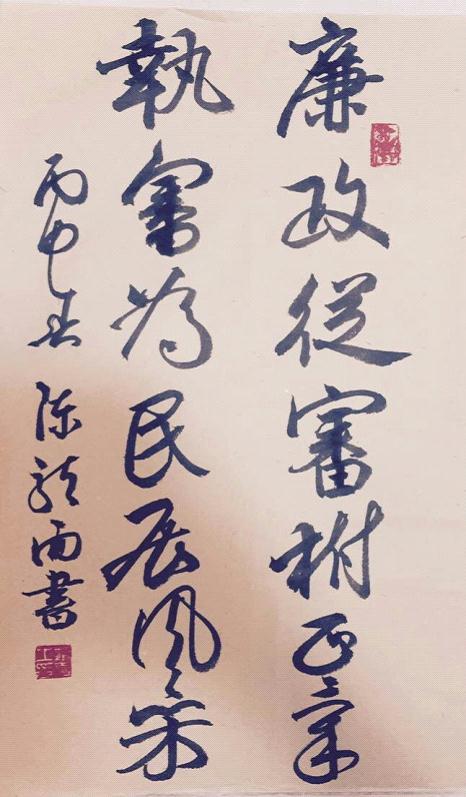 廉政從審樹正氣
執審為民展風采
丙申春 陳龍雨書